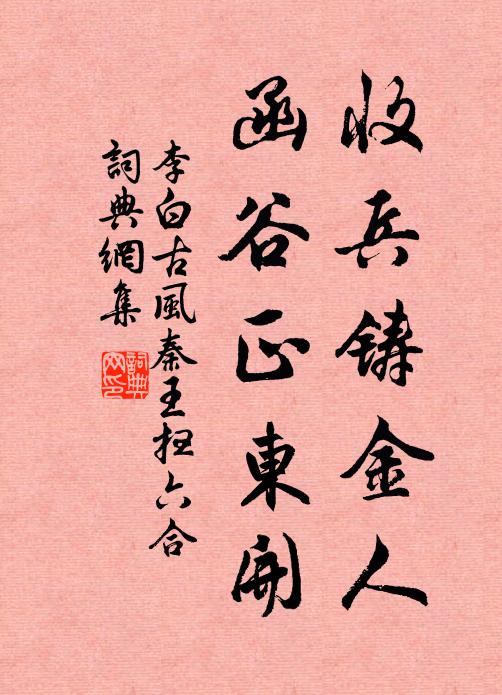 收兵铸金人
函谷正東開
李白古風秦王扫六合
詞典網集
詞典網印